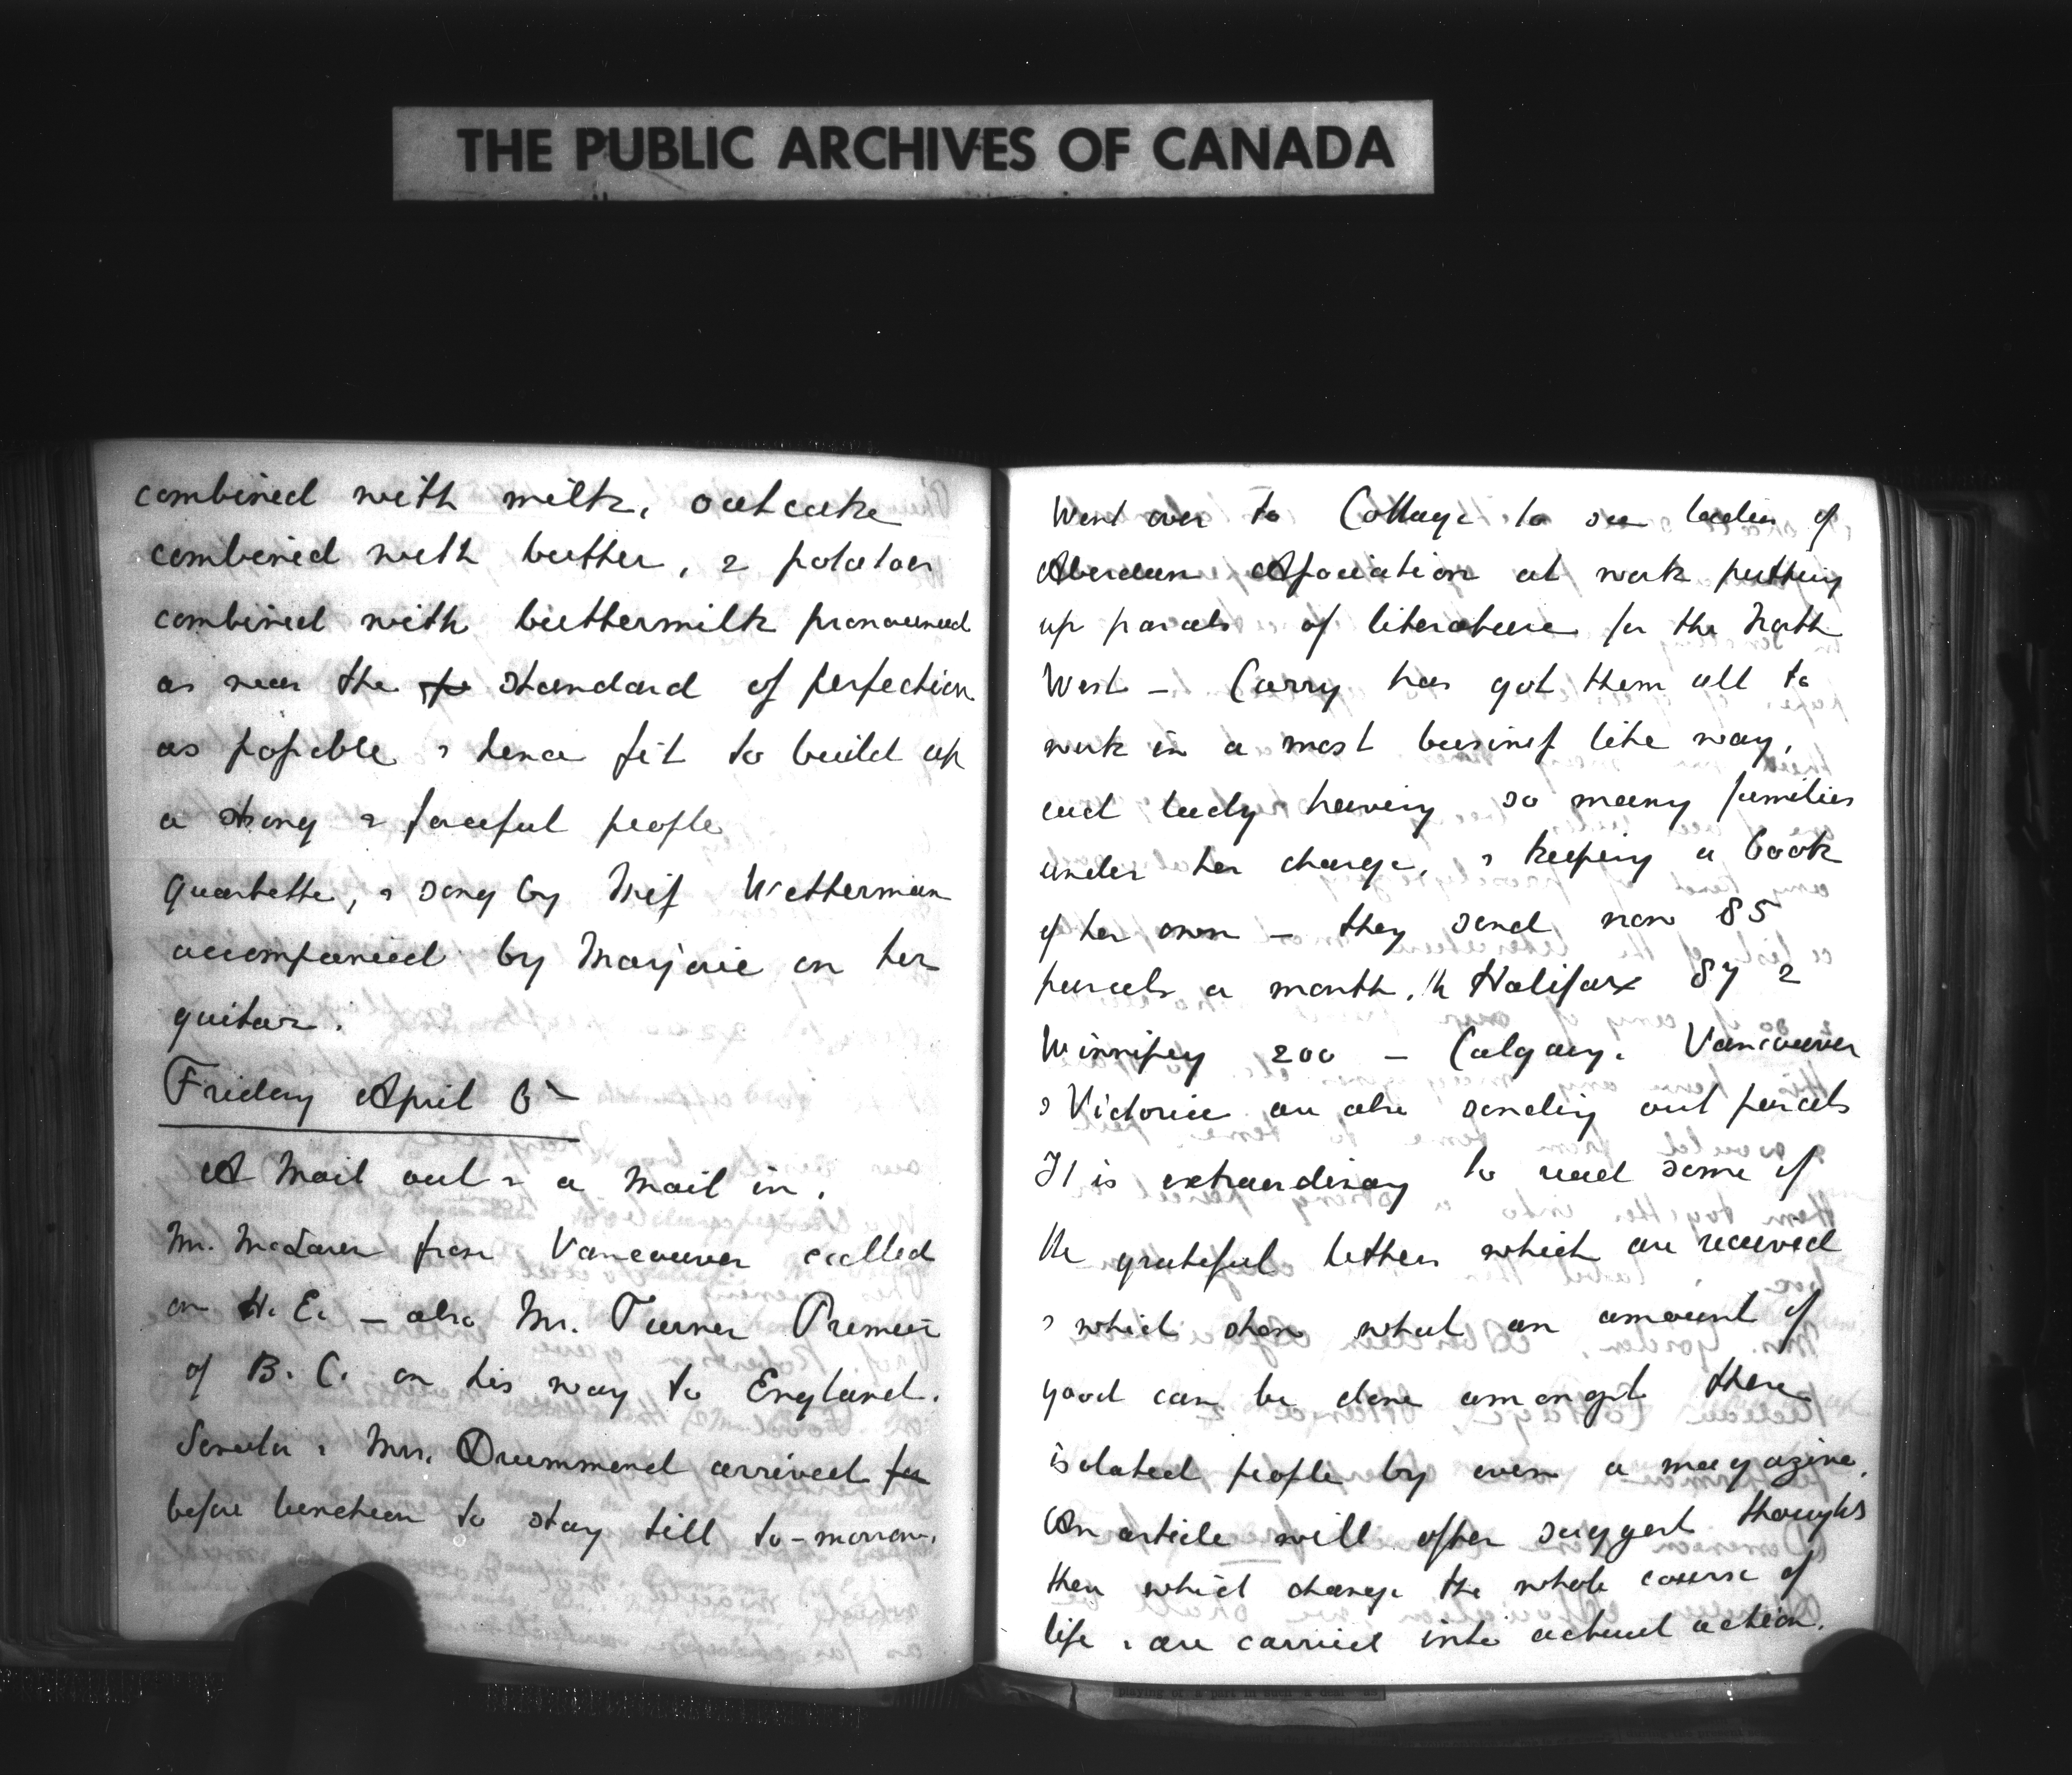 THE PUBLIC ARCHIVES OF CANADA
combined with milk, oatcake
combined with butter, & potatoes
combined with buttermilk pronounced
as near the standard of perfection
as possible & hence fit to build up
a strong & forceful people
Quartette, & song by Miss Wetterman
accompanied by Marjorie on her
guitar.
Friday April
A Mail out & a Mail in.
Mr. McLaren from Vancouver called
on H. E. — also Mr. Turner Premier
of B. C. on his way to England.
Senator & Mrs. Drummond arrived
before luncheon to stay till to-morrow.
Went over to Cottage to see ladies of
Aberdeen Association at work putting
up parcels of literature for the North
West — Carry has got them all to
work in a most business like way,
each lady having so many families
under her charge, & keeping a book
of her own — they send now 85
parcels a month, Halifax 87 &
Winnipeg 200 — Calgary, Vancouver
& Victoria are also sending out parcels
It is extraordinary to read some of
the grateful letters which are received
& which show what an amount of
good can be done amongst these
isolated people by even a magazine.
An article will often suggest thoughts
then which change the whole course of
life & are carried into actual action.